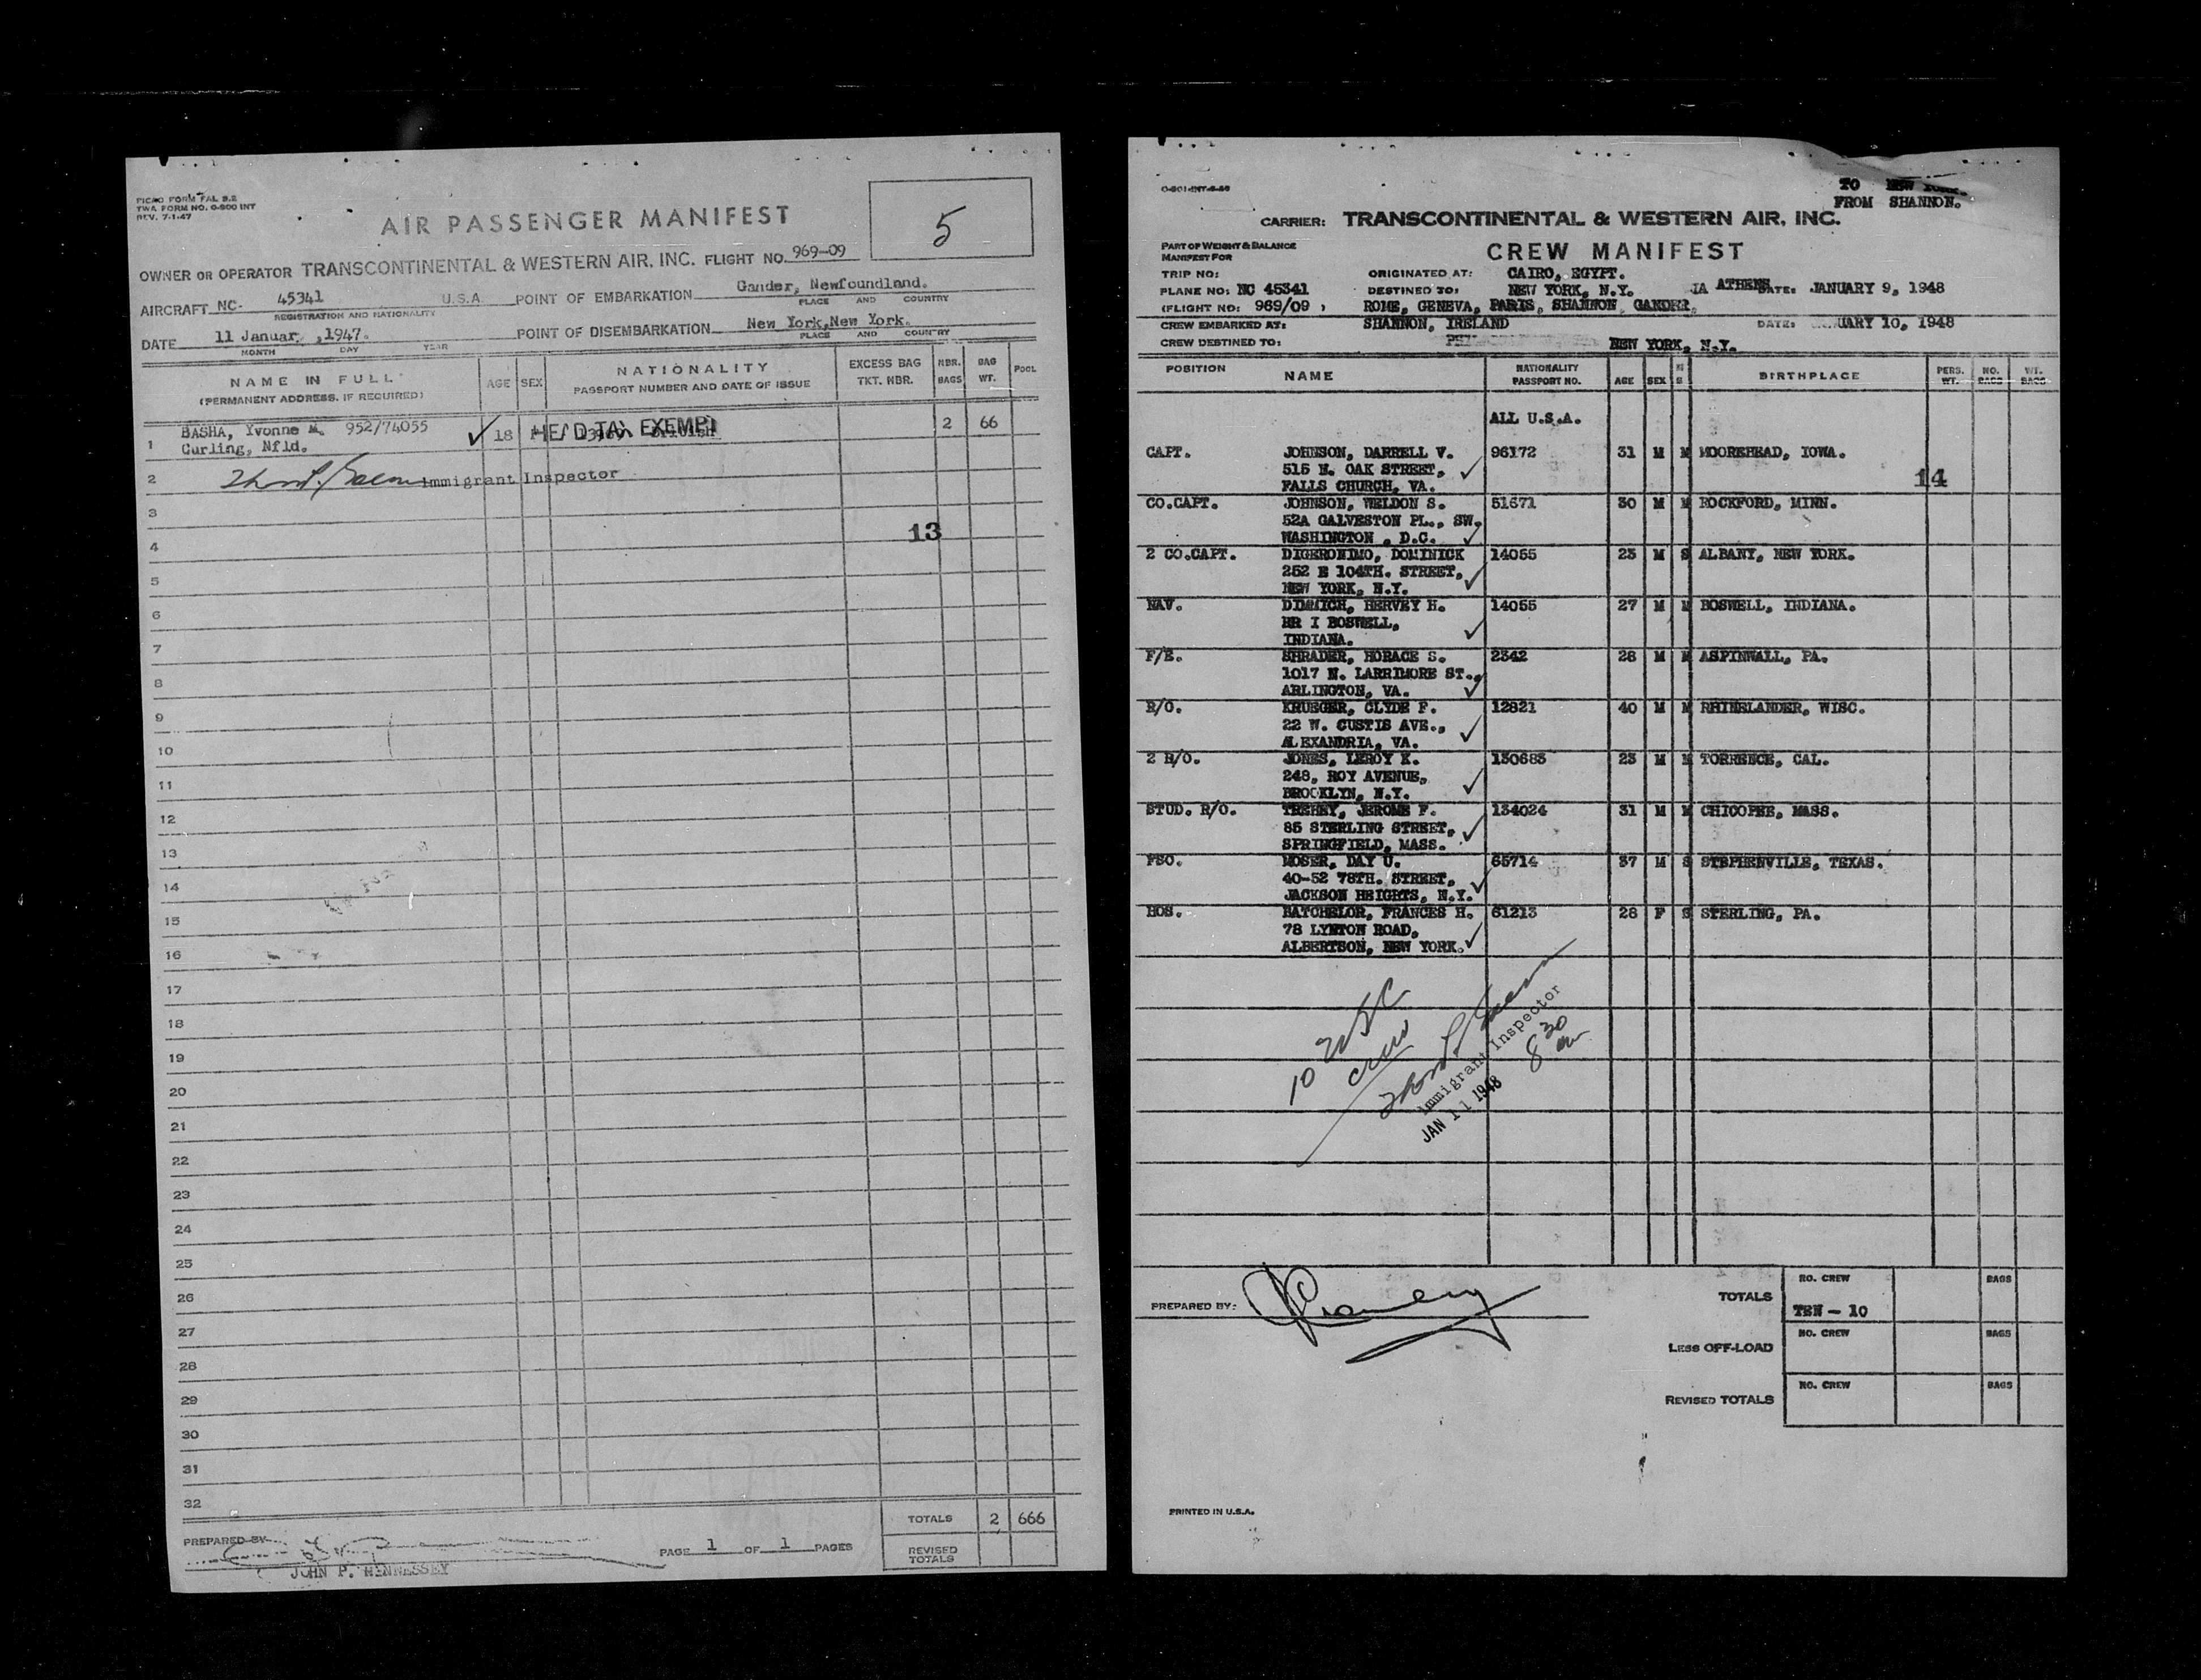 PICAO FORM FAL 3.2
TWA FORM NO. O-800 INT
REV. 7-1-47
AIR PASSENGER MANIFEST
5
OWNER OR OPERATOR TRANSCONTINENTAL & WESTERN AIR, INC. FLIGHT NO. 969-09
AIRCRAFT NC- 45341 U.S.A. POINT OF EMBARKATION Gander, Newfoundland.
REGISTRATION AND NATIONALITY PLACE AND COUNTRY
DATE 11 Januar ,1947. POINT OF DISEMBARKATION New York,New York.
MONTH DAY YEAR PLACE AND COUNTRY
NAME IN FULL
(PERMANENT ADDRESS, IF REQUIRED)
AGE SEX
NATIONALITY
PASSPORT NUMBER AND DATE OF ISSUE
EXCESS BAG
TKT. NBR.
NBR.
BAGS
BAG
WT.
POOL
1 BASHA, Yvonne M. 952/74055 ✓ 18 HEAD TAX EXEMPT 2 66
Curling, Nfld.
2 Immigrant Inspector
3
13
4
5
6
7
8
9
10
11
12
13
14
15
16
17
18
19
20
21
22
23
24
25
26
27
28
29
30
31
32
TOTALS 2 666
REVISED
TOTALS
PREPARED BY
PAGE 1 OF 1 PAGES
JOHN P. HENNESSEY
TO NEW YORK.
FROM SHANNON.
CARRIER: TRANSCONTINENTAL & WESTERN AIR, INC.
PART OF WEIGHT & BALANCE
MANIFEST FOR
CREW MANIFEST
TRIP NO: ORIGINATED AT: CAIRO, EGYPT.
PLANE NO: NC 45341 DESTINED TO: NEW YORK, N.Y. IA ATHENS DATE: JANUARY 9, 1948
(FLIGHT NO: 969/09 , ROME, GENEVA, PARIS, SHANNON, GANDER,
CREW EMBARKED AT: SHANNON, IRELAND DATE: UARY 10, 1948
CREW DESTINED TO: NEW YORK, N.Y.
POSITION NAME NATIONALITY
PASSPORT NO. AGE SEX M
S BIRTHPLACE PERS.
WT. NO.
BAGS WT.
BAGS
ALL U.S.A.
CAPT. JOHNSON, DARRELL V. 96172 31 M M MOOREHEAD, IOWA.
515 N. OAK STREET, ✓ 14
FALLS CHURCH, VA.
CO.CAPT. JOHNSON, WELDON S. 51671 30 M M ROCKFORD, MINN.
52A GALVESTON PL., SW.
WASHINGTON , D.C. ✓
2 CO.CAPT. DIGERONIMO, DOMINICK 14055 23 M S ALBANY, NEW YORK.
252 E 104TH. STREET, ✓
NEW YORK, N.Y.
NAV. DIMMICH, HERVEY H. 14055 27 M M BOSWELL, INDIANA.
RR I BOSWELL, ✓
INDIANA.
F/E. SHRADER, HORACE S. 2342 28 M M ASPINWALL, PA.
1017 N. LARRIMORE ST.,
ARLINGTON, VA. ✓
R/O. KRUEGER, CLYDE F. 12821 40 M M RHINELANDER, WISC.
22 W. CUSTIS AVE., ✓
ALEXANDRIA, VA.
2 R/O. JONES, LEROY K. 130683 23 M M TORRENCE, CAL.
248, ROY AVENUE, ✓
BROOKLYN, N.Y.
STUD. R/O. TREHEY, JEROME F. 134024 31 M M CHICOPEE, MASS.
85 STERLING STREET, ✓
SPRINGFIELD, MASS.
FSO. MOSER, DAY U. 65714 37 M S STEPHENVILLE, TEXAS.
40-52 78TH. STREET, ✓
JACKSON HEIGHTS, N.Y.
HOS. BATCHELOR, FRANCES H. 61213 28 F S STERLING, PA.
78 LYNTON ROAD,
ALBERTSON, NEW YORK. ✓
10 USC
crew
Immigrant Inspector
JAN 11 1948
8 30 am
PREPARED BY:
TOTALS NO. CREW BAGS
TEN - 10
LESS OFF-LOAD NO. CREW BAGS
REVISED TOTALS NO. CREW BAGS
PRINTED IN U.S.A.